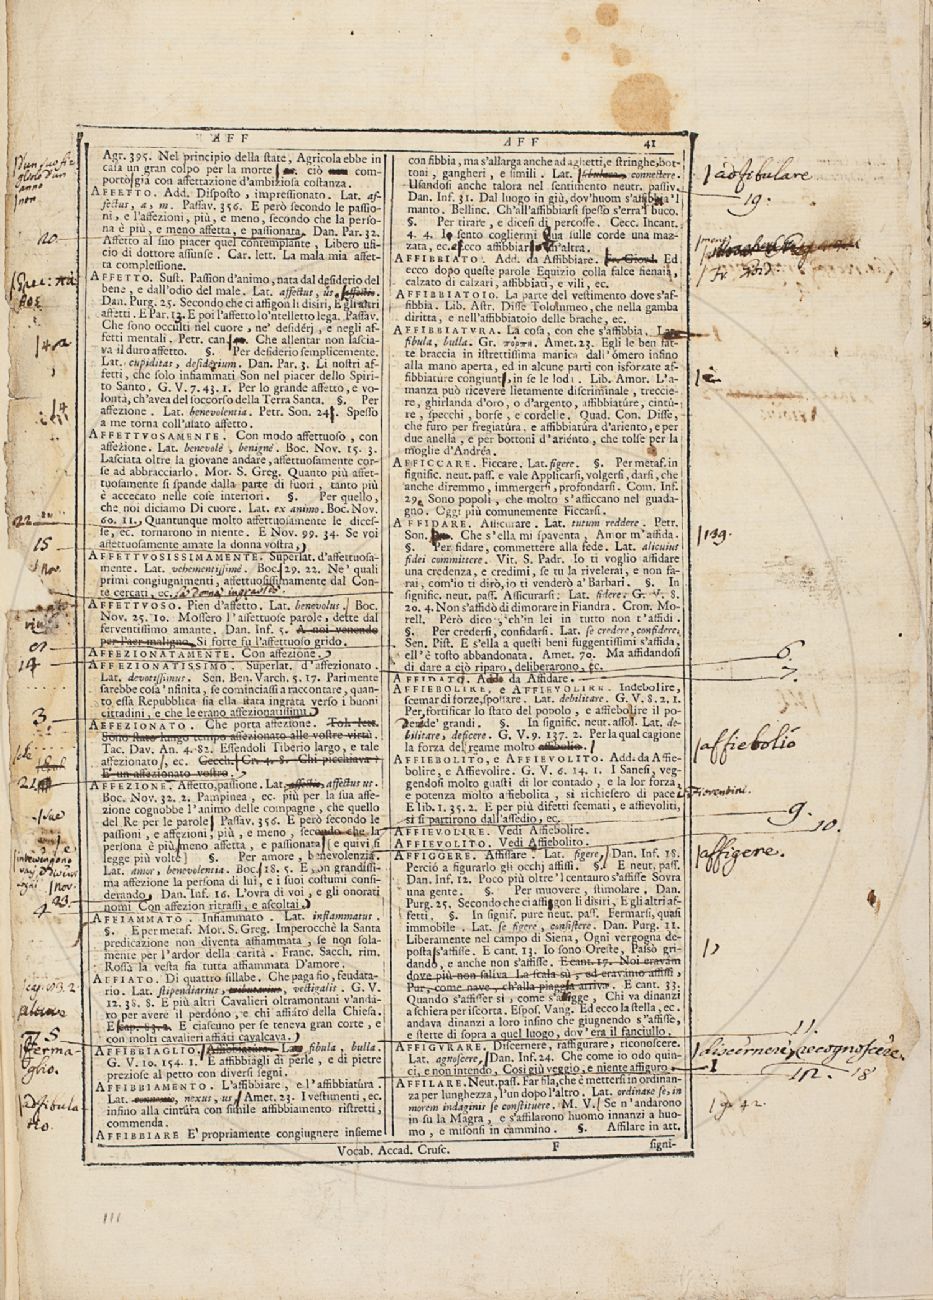 AFF
AFF 41
Agr. 395. Nel principio della state, Agricola ebbe in
casa un gran colpo per la morte ciò com-
portossi già con affettazione d'ambiziosa costanza.
AFFETTO. Add. Disposto, impressionato. Lat. af-
fectus, a, m. Passav. 356. E però secondo le passio-
ni, e l'affezioni, più, e meno, secondo che la perso-
na è più, e meno affetta, e passionata, Dan. Par. 32.
Affetto al suo piacer quel contemplante, Libero ufi-
cio di dottore assunse. Car. lett. La mala mia affet-
ta complessione.
AFFETTO. Sust. Passion d'animo, nata dal desiderio del
bene, e dall'odio del male. Lat. affectus, us,
Dan. Purg. 25. Secondo che ci affigon li disiri, E gli altri
affetti. E Par. 13. E poi l'affetto lo'ntelletto lega. Passav.
Che sono occulti nel cuore, ne' desiderj, e negli af-
fetti mentali. Petr. can. Che allentar non lascia-
va il duro affetto. §. Per desiderio semplicemente.
Lat. cupiditas, desiderium. Dan. Par. 3. Li nostri af-
fetti, che solo infiammati Son nel piacer dello Spiri-
to Santo. G. V. 7. 43. 1. Per lo grande affetto, e vo-
lontà, ch'avea del soccorso della Terra Santa. §. Per
affezione. Lat. benevolentia. Petr. Son. 24. Spesso
a me torna coll'usato affetto.
AFFETTVOSAMENTE. Con modo affettuoso, con
affezione. Lat. benevolè, benignè. Boc. Nov. 15. 3.
Lasciata oltre la giovane andare, affettuosamente cor-
se ad abbracciarlo. Mor. S. Greg. Quanto più affet-
tuosamente si spande dalla parte di fuori, tanto più
è accecato nelle cose interiori. §. Per quello,
che noi diciamo Di cuore. Lat. ex animo. Boc. Nov.
60. 11. Quantunque molto affettuosamente le dices-
se, ec. tornarono in niente. E Nov. 99. 34. Se voi
affettuosamente amate la donna vostra,
AFFETTVOSISSIMAMENTE. Superlat. d'affettuosa-
mente. Lat. vehementissimè. Boc. 29. 22. Ne' quali
primi congiugnimenti, affettuosissimamente dal Con-
te cercati, ec. la donna ingravidò.
AFFETTVOSO. Pien d'affetto. Lat. benevolus. Boc.
Nov. 25. 10. Mossero l'affettuose parole, dette dal
ferventissimo amante. Dan. Inf. 5. A noi venendo
per l'aer maligno, Sì forte fu l'affettuoso grido.
AFFEZIONATAMENTE. Con affezione.
AFFEZIONATISSIMO. Superlat. d'affezionato.
Lat. devotissimus. Sen. Ben. Varch. 5. 17. Parimente
sarebbe cosa 'nfinita, se cominciassi a raccontare, quan-
to essa Repubblica sia ella stata ingrata verso i buoni
cittadini, e che le erano affezionatissimi.
AFFEZIONATO. Che porta affezione. Tol. lett.
Sono stato lungo tempo affezionato alle vostre virtù.
Tac. Dav. An. 4. 82. Essendoli Tiberio largo, e tale
affezionato, ec. Cecch. Cr. 4. 8. Chi picchiava?
E' un affezionato vostro.
AFFEZIONE. Affetto, passione. Lat. affectus us.
Boc. Nov. 32. 2. Pampinea, ec. più per la sua affe-
zione cognobbe l'animo delle compagne, che quello
del Re per le parole. Passav. 356. E però secondo le
passioni, e affezioni, più, e meno, secondo che la
persona è più, e meno affetta, e passionata (e quivi si
legge più volte) §. Per amore, benevolenzia.
Lat. amor, benevolentia. Boc. 18. 5. E con grandissi-
ma affezione la persona di lui, e i suoi costumi consi-
derando. Dan. Inf. 16. L'ovra di voi, e gli onorati
nomi Con affezion ritrassi, e ascoltai.
AFFIAMMATO. Infiammato. Lat. inflammatus.
§. E per metaf. Mor. S. Greg. Imperocchè la Santa
predicazione non diventa affiammata, se non sola-
mente per l'ardor della carità. Franc. Sacch. rim.
Rossa la vesta sia tutta affiammata D'amore.
AFFIATO. Di quattro sillabe. Che paga fio, feudata-
rio. Lat. stipendiarius, tributarius, vectigalis. G. V.
12. 38. 8. E più altri Cavalieri oltramontani v'andà-
ro per avere il perdono, e chi affiato della Chiesa.
E cap. 83. 2. E ciascuno per se teneva gran corte, e
con molti cavalieri affiati cavalcava.
AFFIBBIAGLIO, Affibbiatura. Lat. fibula, bulla.
G. V. 10. 154. 1. E affibbiagli di perle, e di pietre
preziose al petto con diversi segni.
AFFIBBIAMENTO. L'affibbiare, e l'affibbiatura.
Lat. nexus, us, Amet. 23. I vestimenti, ec.
infino alla cintura con simile affibbiamento ristretti,
commenda.
AFFIBBIARE E' propriamente congiugnere insieme
con fibbia, ma s'allarga anche ad aghetti, e stringhe, bot-
toni, gangheri, e simili. Lat. fibulare, connectere.
Usandosi anche talora nel sentimento neutr. passiv.
Dan. Inf. 31. Dal luogo in giù, dov'huom s'affibbia 'l
manto. Bellinc. Ch'all'affibbiarsi spesso s'erra 'l buco.
§. Per tirare, e dicesi di percosse. Cecc. Incant.
4. 4. Io sento cogliermi qua sulle corde una maz-
zata, ec. ecco affibbiar un'altra.
AFFIBBIATO. Add. da Affibbiare. Fr. Giord. Ed
ecco dopo queste parole Equizio colla falce fienaia,
calzato di calzari, affibbiati, e vili, ec.
AFFIBBIATOIO. La parte del vestimento dove s'af-
fibbia. Lib. Astr. Disse Tolommeo, che nella gamba
diritta, e nell'affibbiatoio delle brache, ec.
AFFIBBIATVRA. La cosa, con che s'affibbia. Lat.
fibula, bulla. Gr. πόρπη. Amet. 23. Egli le ben fat-
te braccia in istrettissima manica dall'omero infino
alla mano aperta, ed in alcune parti con isforzate af-
fibbiature congiunta, in se loda. Lib. Amor. L'a-
manza può ricevere lietamente discriminale, treccie-
re, ghirlanda d'oro, o d'argento, affibbiature, cintu-
re, specchi, borse, e cordelle. Quad. Con. Disse,
che furo per fregiatura, e affibbiatura d'ariento, e per
due anella, e per bottoni d'ariento, che tolse per la
moglie d'Andrea.
AFFICCARE. Ficcare. Lat. figere. §. Per metaf. in
signific. neut. pass. e vale Applicarsi, volgersi, darsi, che
anche diremmo, immergersi, profondarsi. Com. Inf.
29. Sono popoli, che molto s'afficcano nel guada-
gno. Oggi più comunemente Ficcarsi.
AFFIDARE. Assicurare. Lat. tutum reddere. Petr.
Son. Che s'ella mi spaventa, Amor m'affida.
§. Per fidare, commettere alla fede. Lat. alicuius
fidei committere. Vit. S. Padr. Io ti voglio affidare
una credenza, e credimi, se tu la rivelerai, e non fa-
rai, com'io ti dirò, io ti venderò a' Barbari. §. In
signific. neut. pass. Assicurarsi. Lat. fidere. G. V. 8.
20. 4. Non s'affidò di dimorare in Fiandra. Cron. Mo-
rell. Però dico, ch'in lei in tutto non t'affidi.
§. Per credersi, confidarsi. Lat. se credere, confidere.
Sen. Pist. E s'ella a questi beni suggentissimi s'affida,
ell'è tosto abbandonata. Amet. 79. Ma affidandosi
di dare a ciò riparo, deliberarono, ec.
AFFIDATO. Add. da Affidare.
AFFIEBOLIRE, e AFFIEVOLIRE. Indebolire,
scemar di forze, spossare. Lat. debilitare. G. V. 8. 2. 1.
Per fortificar lo stato del popolo, e affiebolire il po-
dere de' grandi. §. In signific. neut. assol. Lat. de-
bilitare, deficere. G. V. 9. 137. 2. Per la qual cagione
la forza del reame molto affiebolio.
AFFIEBOLITO, e AFFIEVOLITO. Add. da Affie-
bolire, e Affievolire. G. V. 6. 14. 1. I Sanesi, veg-
gendosi molto guasti di lor contado, e la lor forza,
e potenza molto affiebolita, si richiesero di pace
E lib. 1. 35. 2. E per più difetti scemati, e affievoliti,
si si partirono dall'assedio, ec.
AFFIEVOLIRE. Vedi Affiebolire.
AFFIEVOLITO. Vedi Affiebolito.
AFFIGGERE. Affissare. Lat. figere, Dan. Inf. 18.
Perciò a figurarlo gli occhi affissi. §. E neut. pass.
Dan. Inf. 12. Poco più oltre 'l centauro s'affisse Sovra
una gente. §. Per muovere, stimolare, Dan.
Purg. 25. Secondo che ci affiggon li disiri, E gli altri af-
fetti. §. In signif. pure neut. pass. Fermarsi, quasi
immobile. Lat. se figere, consistere. Dan. Purg. 11.
Liberamente nel campo di Siena, Ogni vergogna de-
posta s'affisse. E cant. 13. Io sono Oreste, Passò gri-
dando, e anche non s'affisse. E cant. 17. Noi eravam
dove più non saliva La scala sù, ed eravamo affissi,
Pur, come nave, ch'alla piaggia arriva. E cant. 33.
Quando s'affisser si, come s'affigge, Chi va dinanzi
a schiera per iscorta. Espos. Vang. Ed ecco la stella, ec.
andava dinanzi a loro infino che giugnendo s'affisse,
e stette di sopra a quel luogo, dov'era il fanciullo.
AFFIGVRARE. Discernere, raffigurare, riconoscere.
Lat. agnoscere, Dan. Inf. 24. Che come io odo quin-
ci, e non intendo, Così giù veggio, e niente affiguro.
AFFILARE. Neut. pass. Far fila, che è mettersi in ordinan-
za per lunghezza, l'un dopo l'altro. Lat. ordinare se, in
morem indaginis se constituere. M. V. Se n'andarono
in su la Magra, e s'affilarono huomo innanzi a huo-
mo, e misonsi in cammino. §. Affilare in att.
signi-
Vocab. Accad. Crusc. F
adfibulare
19.
139.
6.
7.
affiebolio
Fiorentini.
9.
10.
affigere.
11.
discernere, recognoscere.
12. 18
9. 42.
20
14
22
15
nov.
14
3
21
nov.
23
4
cap. 83. 2
5
Ferma-
glio.
adfibula-
tio.